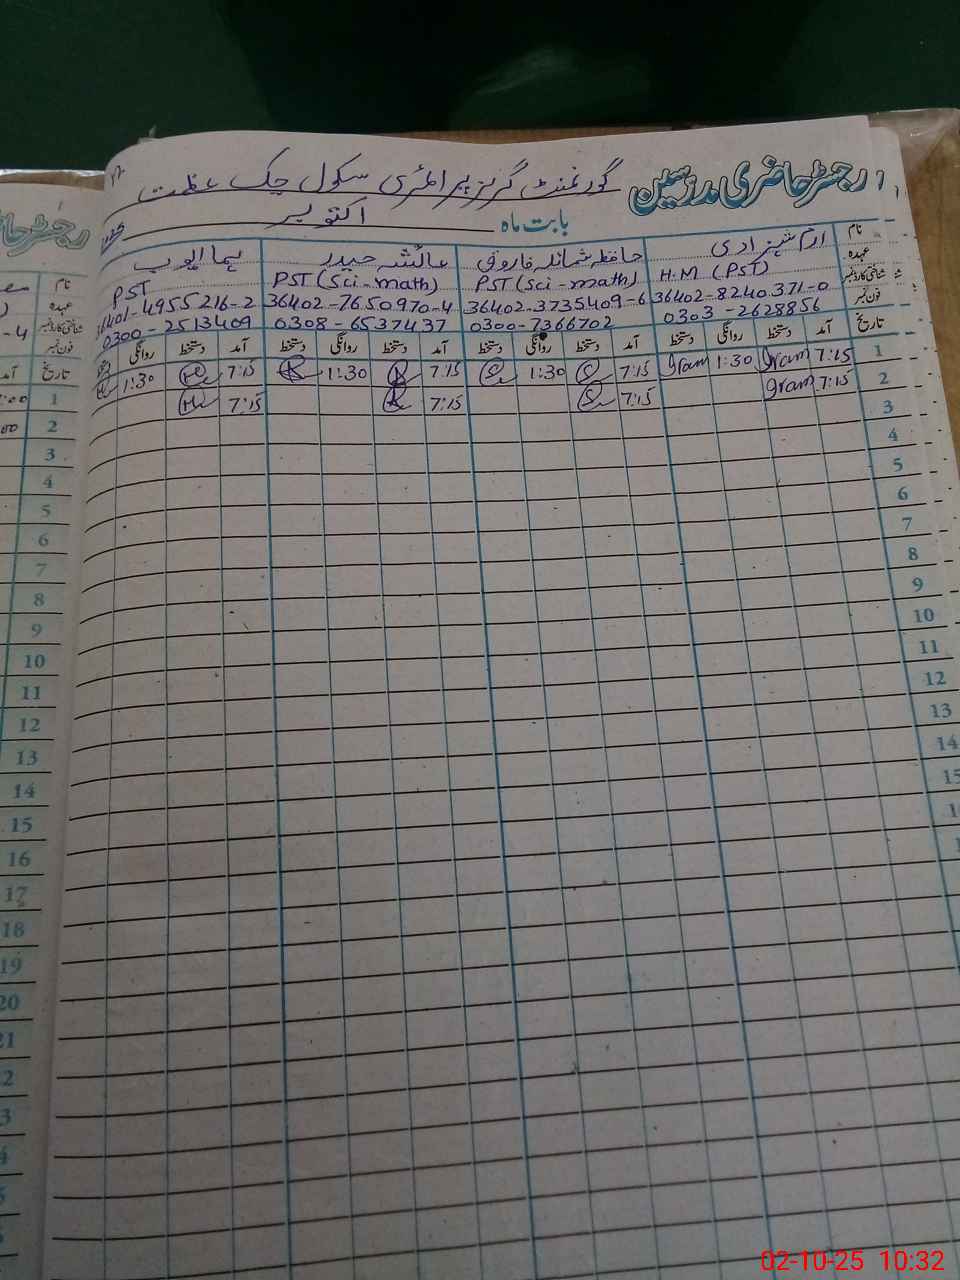 رجسٹر حاضری مدرسین گورنمنٹ گرلز پرائمری سکول چک عظمت
بابت ماہ اکتوبر
نام ارم شہزادی حافظہ شمائلہ فاروقی عائشہ حیدر ہما ایوب
عہدہ H.M (PST) PST (Sci-math) PST (Sci-math) PST
شناختی کارڈ نمبر 36402-8240371-0 36402-3735409-6 36402-7650970-4 36401-4955216-2
فون نمبر 0303-2628856 0300-7366702 0308-6537437 0300-2513409
تاریخ آمد دستخط روانگی دستخط آمد دستخط روانگی دستخط آمد دستخط روانگی دستخط آمد دستخط روانگی دستخط
1 7:15 Iram 1:30 Iram 7:15 1:30 7:15 1:30 7:15 1:30
2 7:15 Iram 7:15 7:15 7:15
3
4
5
6
7
8
9
10
11
12
13
14
15
رجسٹر
نام
عہدہ
شناختی کارڈ نمبر
فون نمبر
تاریخ
1
2
3
4
5
6
7
8
9
10
11
12
13
14
15
16
17
18
19
20
02-10-25 10:32